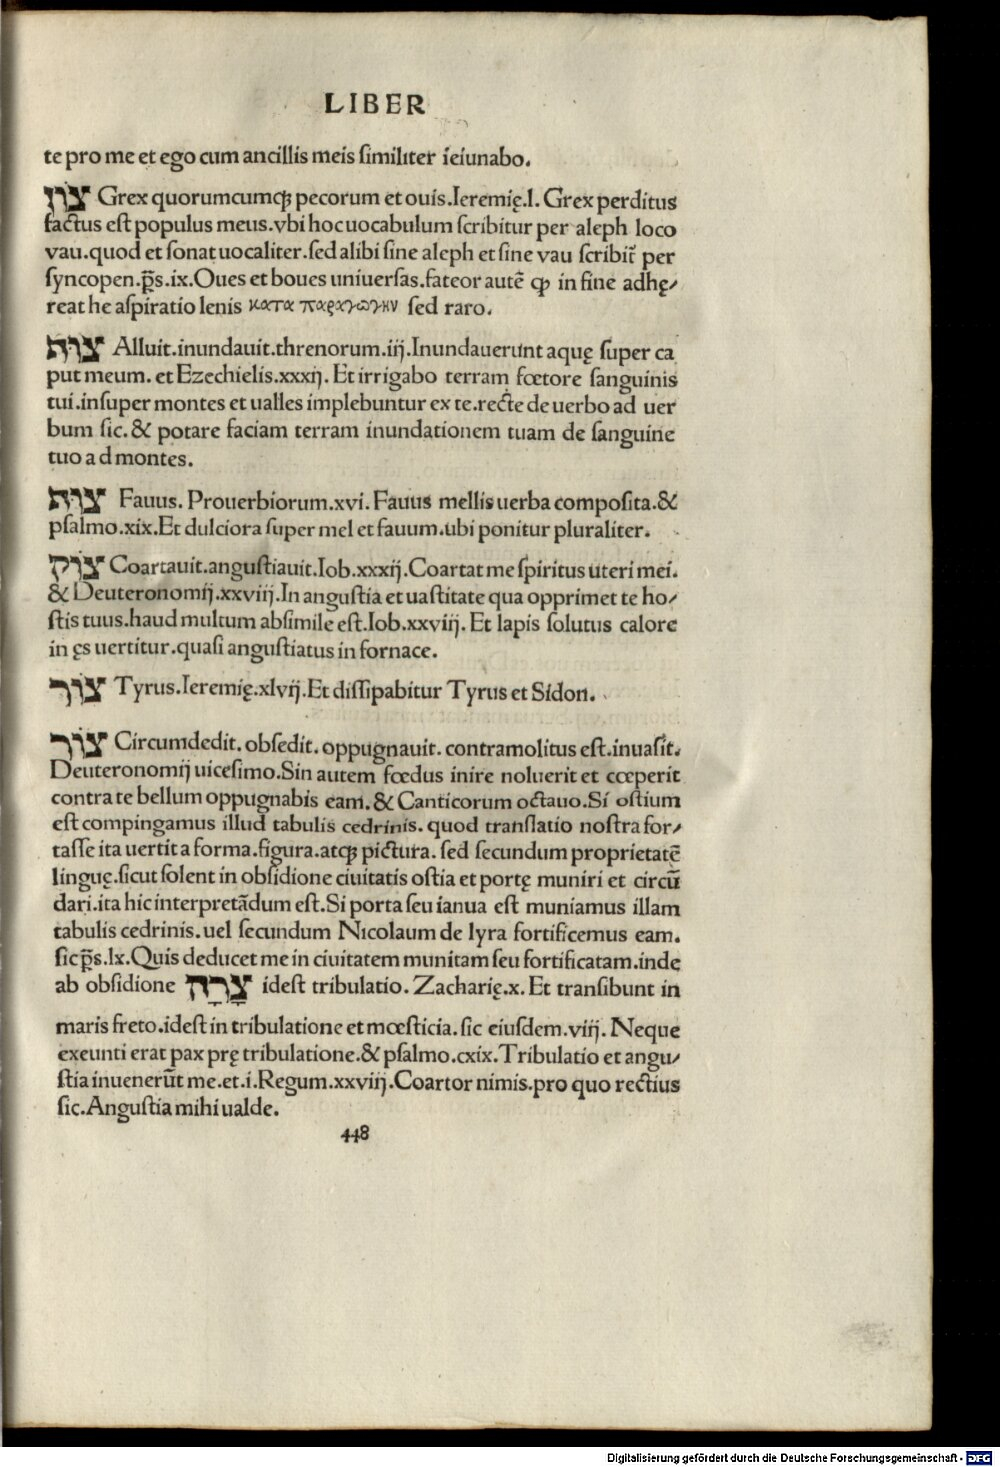 LIBER
te pro me et ego cum ancillis meis ſimiliter ieiunabo.
צוֹן Grex quorumcumqꝫ pecorum et ouis.Ieremię.l. Grex perditus
factus eſt populus meus.vbi hoc uocabulum ſcribitur per aleph loco
vau.quod et ſonat uocaliter.ſed alibi ſine aleph et ſine vau ſcribit̃ per
ſyncopen.p̃s.ix.Oues et boues uniuerſas.fateor autẽ ꝙ in fine adhę⸗
reat he aſpiratio lenis κατα παραγωγην ſed raro.
צוּף Alluit.inundauit.threnorum.iij.Inundauerunt aquę ſuper ca
put meum. et Ezechielis.xxxij. Et irrigabo terram fœtore ſanguinis
tui.inſuper montes et ualles implebuntur ex te.recte de uerbo ad uer
bum ſic. & potare faciam terram inundationem tuam de ſanguine
tuo ad montes.
צוּף Fauus. Prouerbiorum.xvi. Fauus mellis uerba compoſita.&
pſalmo.xix.Et dulciora ſuper mel et fauum.ubi ponitur pluraliter.
צוֹק Coartauit.anguſtiauit.Iob.xxxij.Coartat me ſpiritus uteri mei.
& Deuteronomij.xxviij.In anguſtia et uaſtitate qua opprimet te ho⸗
ſtis tuus.haud multum abſimile eſt.Iob.xxviij. Et lapis ſolutus calore
in ęs uertitur.quaſi anguſtiatus in fornace.
צוֹר Tyrus.Ieremię.xlvij.Et diſſipabitur Tyrus et Sidon.
צוֹר Circumdedit. obſedit. oppugnauit. contramolitus eſt.inuaſit.
Deuteronomij uiceſimo.Sin autem fœdus inire noluerit et cœperit
contra te bellum oppugnabis eam. & Canticorum octauo.Si oſtium
eſt compingamus illud tabulis cedrinis. quod tranſlatio noſtra for⸗
taſſe ita uertit a forma.figura.atqꝫ pictura. ſed ſecundum proprietatẽ
linguę.ſicut ſolent in obſidione ciuitatis oſtia et portę muniri et circũ
dari.ita hic interpretãdum eſt.Si porta ſeu ianua eſt muniamus illam
tabulis cedrinis.uel ſecundum Nicolaum de lyra fortificemus eam.
ſic p̃s.lx.Quis deducet me in ciuitatem munitam ſeu fortificatam.inde
ab obſidione צָרָה ideſt tribulatio. Zacharię.x. Et tranſibunt in
maris freto.ideſt in tribulatione et mœſticia. ſic eiuſdem.viij. Neque
exeunti erat pax prę tribulatione.& pſalmo.cxix.Tribulatio et angu⸗
ſtia inuenerũt me.et.i.Regum.xxviij.Coartor nimis.pro quo rectius
ſic.Anguſtia mihi ualde.
448
Digitalisierung gefördert durch die Deutsche Forschungsgemeinschaft - DFG